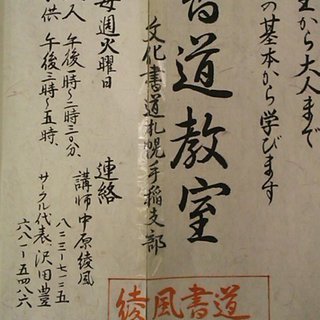 生から大人まで
の基本から学びます
書道教室
文化書道札幌手稲支部
毎週火曜日
人 午後一時〜二時三〇分、
供 午後三時〜五時、
連絡
講師 中原綾風
八二三ー七一二五
サークル代表 沢田豊
六八一ー五四八六
綾風書道